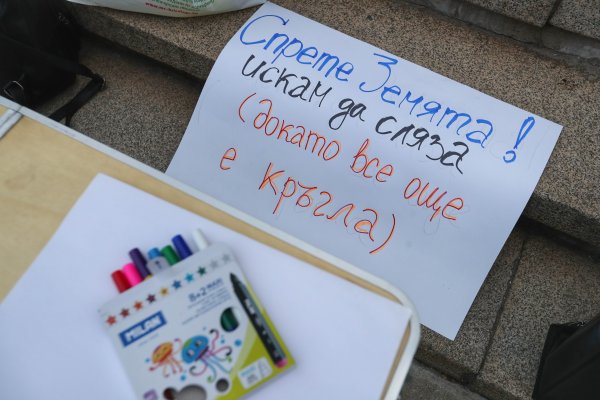 Спрете Земята!
искам да сляза
(докато все още
е кръгла)
8+2 MAXI
MILAN